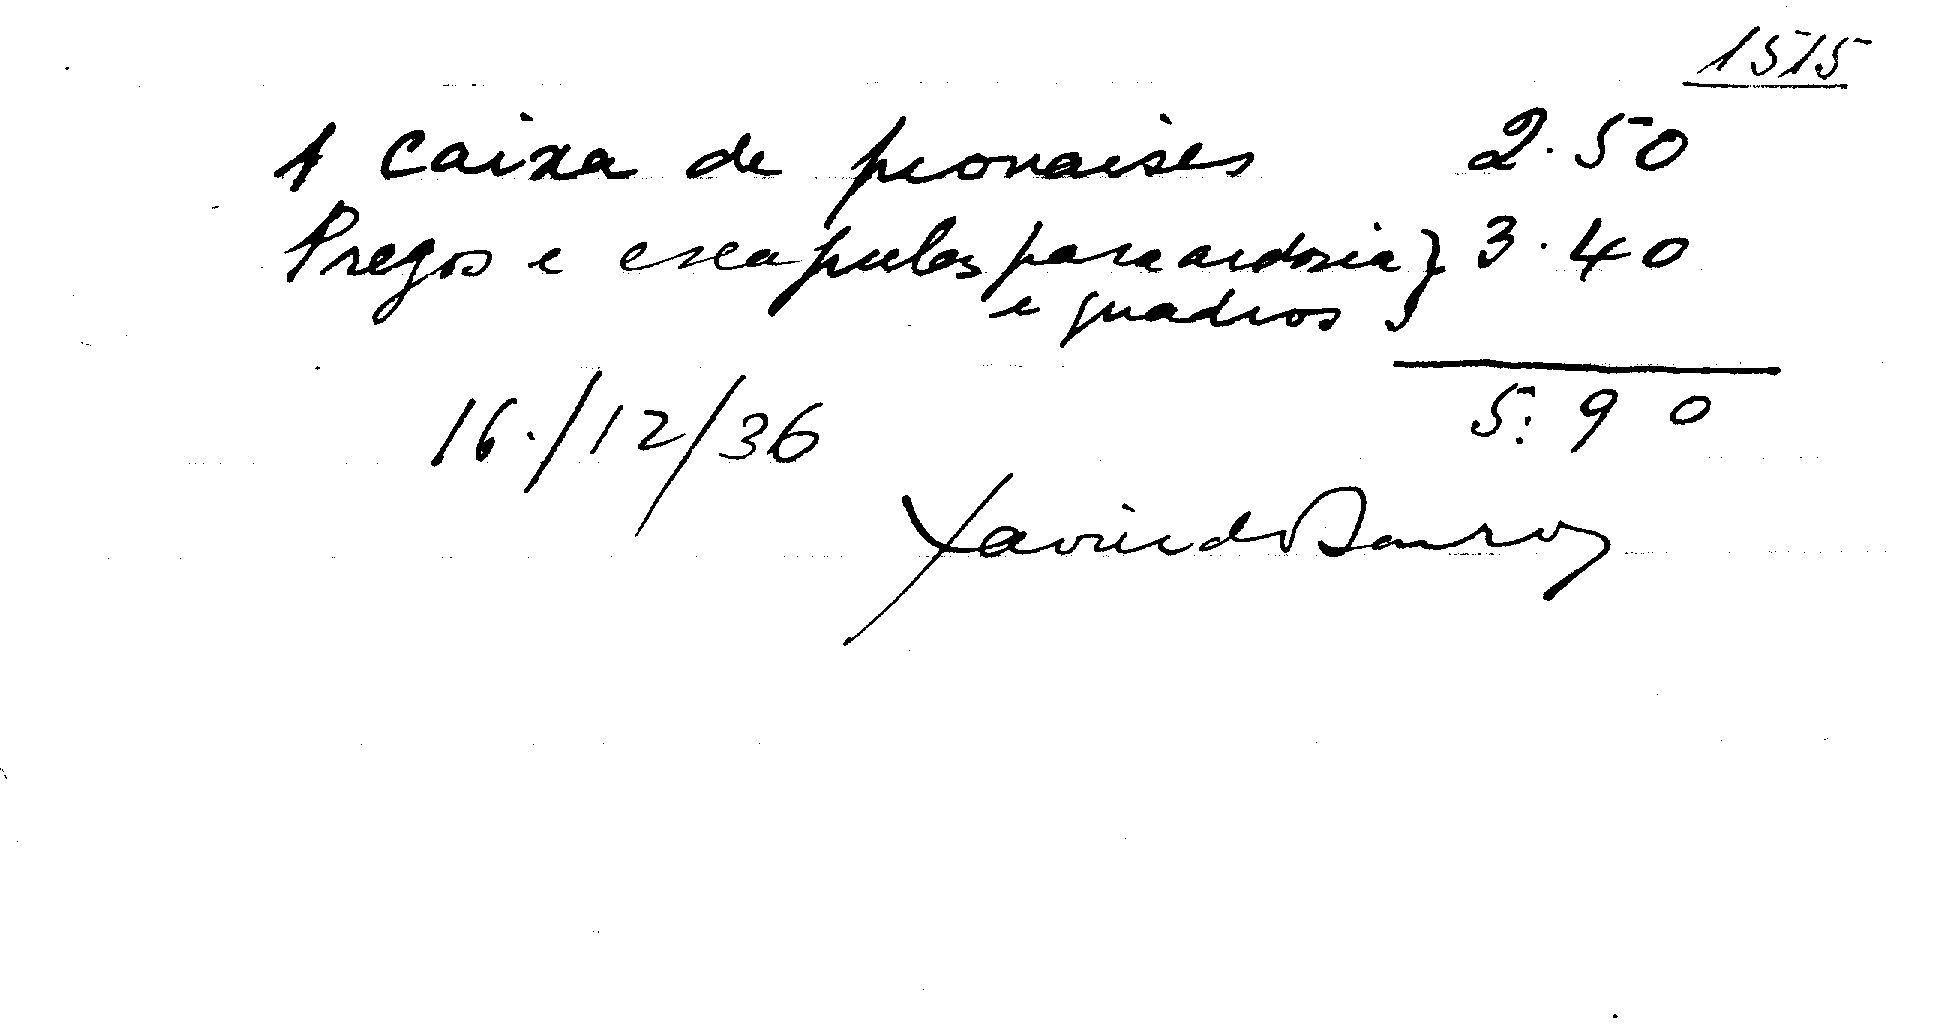 1515
1 Caixa de pionaises 2.50
Pregos e escapulas para ardosia } 3.40
e quadros
5.90
16./12/36
Xavier de Barros